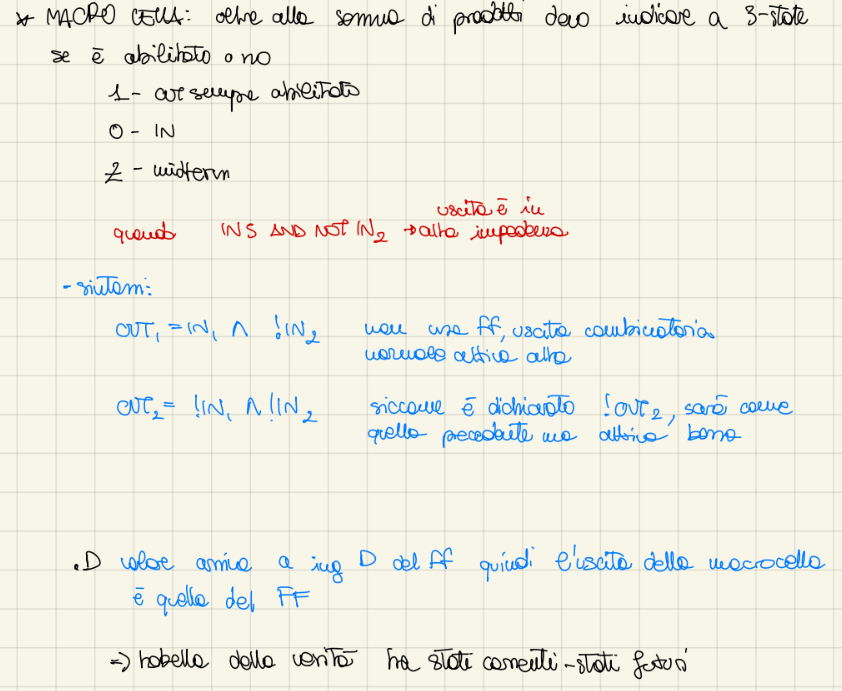 * MACRO CELLA: oltre alla somma di prodotti devo indicare a 3-state
se è abilitato o no
1 - OUT sempre abilitato
0 - IN
Z - midterm
uscita è in
quando IN5 AND NOT IN2 → alta impedenza
- sintami:
OUT1 = IN1 ∧ !IN2 non usa ff, uscita combinatoria
normale attiva alta
OUT2 = !IN1 ∧ !IN2 siccome è dichiarato !OUT2, sarà come
quella precedente ma attiva bassa
.D valore arriva a ing D del ff quindi l'uscita della macrocella
è quella del FF
=> tabella della verità ha stati correnti - stati futuri